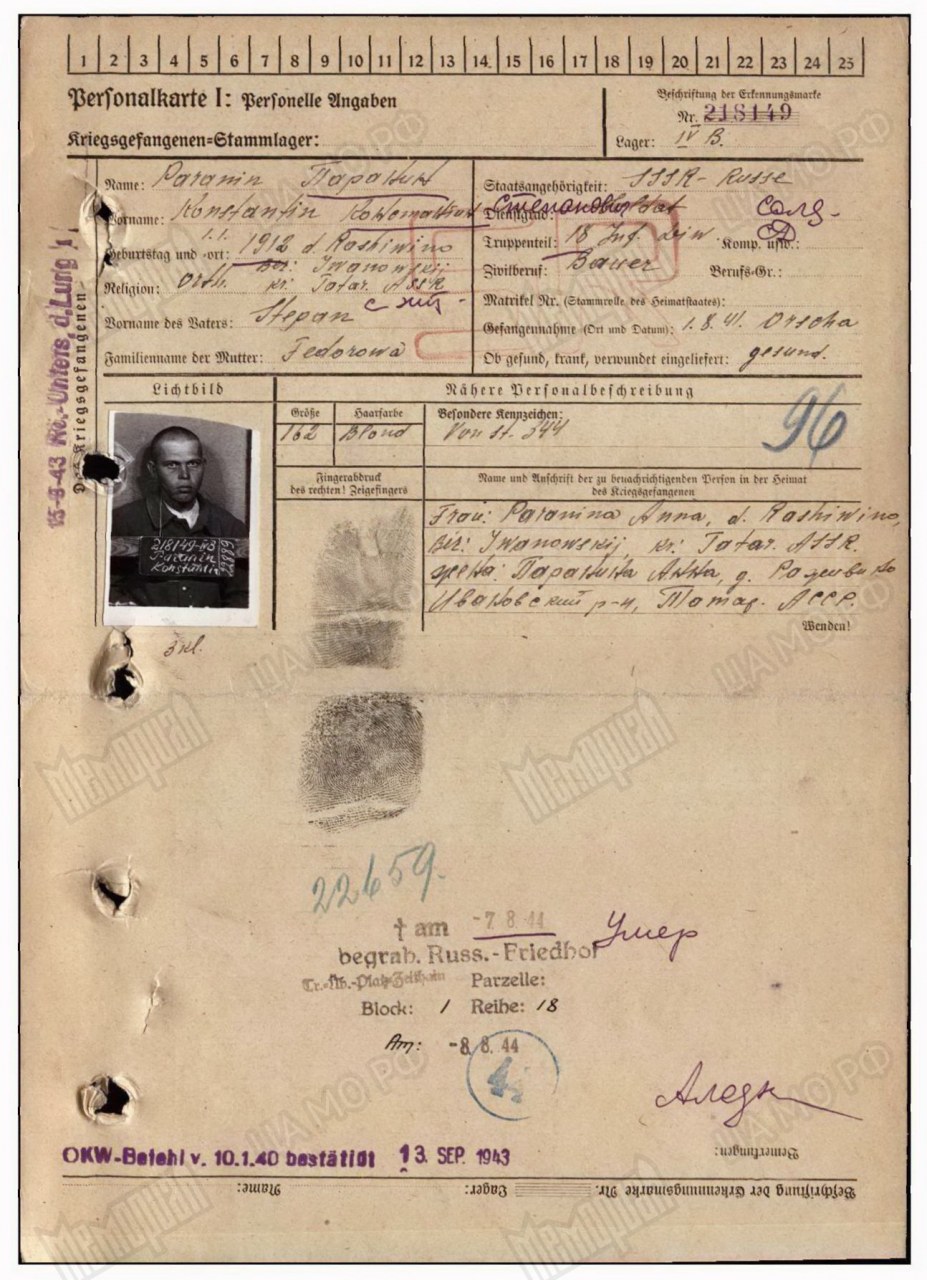 1 2 3 4 5 6 7 8 9 10 11 12 13 14 15 16 17 18 19 20 21 22 23 24 25
Personalkarte I: Personelle Angaben
Kriegsgefangenen=Stammlager:
Beschriftung der Erkennungsmarke
Nr. 218149
Lager: IV B.
Name: Paranin Паранин
Vorname: Konstantin Константин Степанович
Geburtstag und -ort: 1.1. 1912 d. Roshiwino
Bez: Iwanowskij
Religion: Orth. kr: Tatar. ASSR
Vorname des Vaters: Stepan
Familienname der Mutter: Fedorowa
Staatsangehörigkeit: SSSR- Russe
Dienstgrad: Soldat Солд-
Truppenteil: 18 Inf. Div. Komp. usw.: СД
Zivilberuf: Bauer Berufs-Gr.:
Matrikel Nr. (Stammrolle des Heimatstaates):
Gefangennahme (Ort und Datum): 1.8.41. Orscha
Ob gesund, krank, verwundet eingeliefert: gesund.
Des Kriegsgefangenen
Lichtbild
Nähere Personalbeschreibung
Größe Haarfarbe Besondere Kennzeichen:
162 Blond Von St. 344
96
Fingerabdruck
des rechten! Zeigefingers
Name und Anschrift der zu benachrichtigenden Person in der Heimat
des Kriegsgefangenen
Frau: Paranina Anna, d. Roshiwino,
Bez: Iwanowskij, kr: Tatar. ASSR.
жена: Паранина Анна, д. Рошивино
Ивановский р-н, Татар. АССР.
Wenden!
218149 IVB
Paranin
Konstantin
22659.
† am -7.8.44 Умер
begrab. Russ.-Friedhof
Tr.=Üb.-Platz Zeithain Parzelle:
Block: 1 Reihe: 18
Am: -8.8.44
OKW-Befehl v. 10.1.40 bestätigt 13. SEP. 1943
Bemerkungen:
Beschriftung der Erkennungsmarke Nr. Lager: Name:
Мемориал
ЦАМО РФ